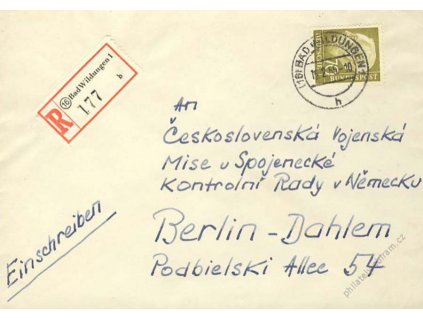 (16) Bad Wildungen 1
b
R
177
(16) BAD WILDUNGEN
h
BUNDESPOST
An
Československá Vojenská
Mise u Spojenecké
Kontrolní Rady v Německu
Einschreiben
Berlin-Dahlem
Podbielski Allee 54